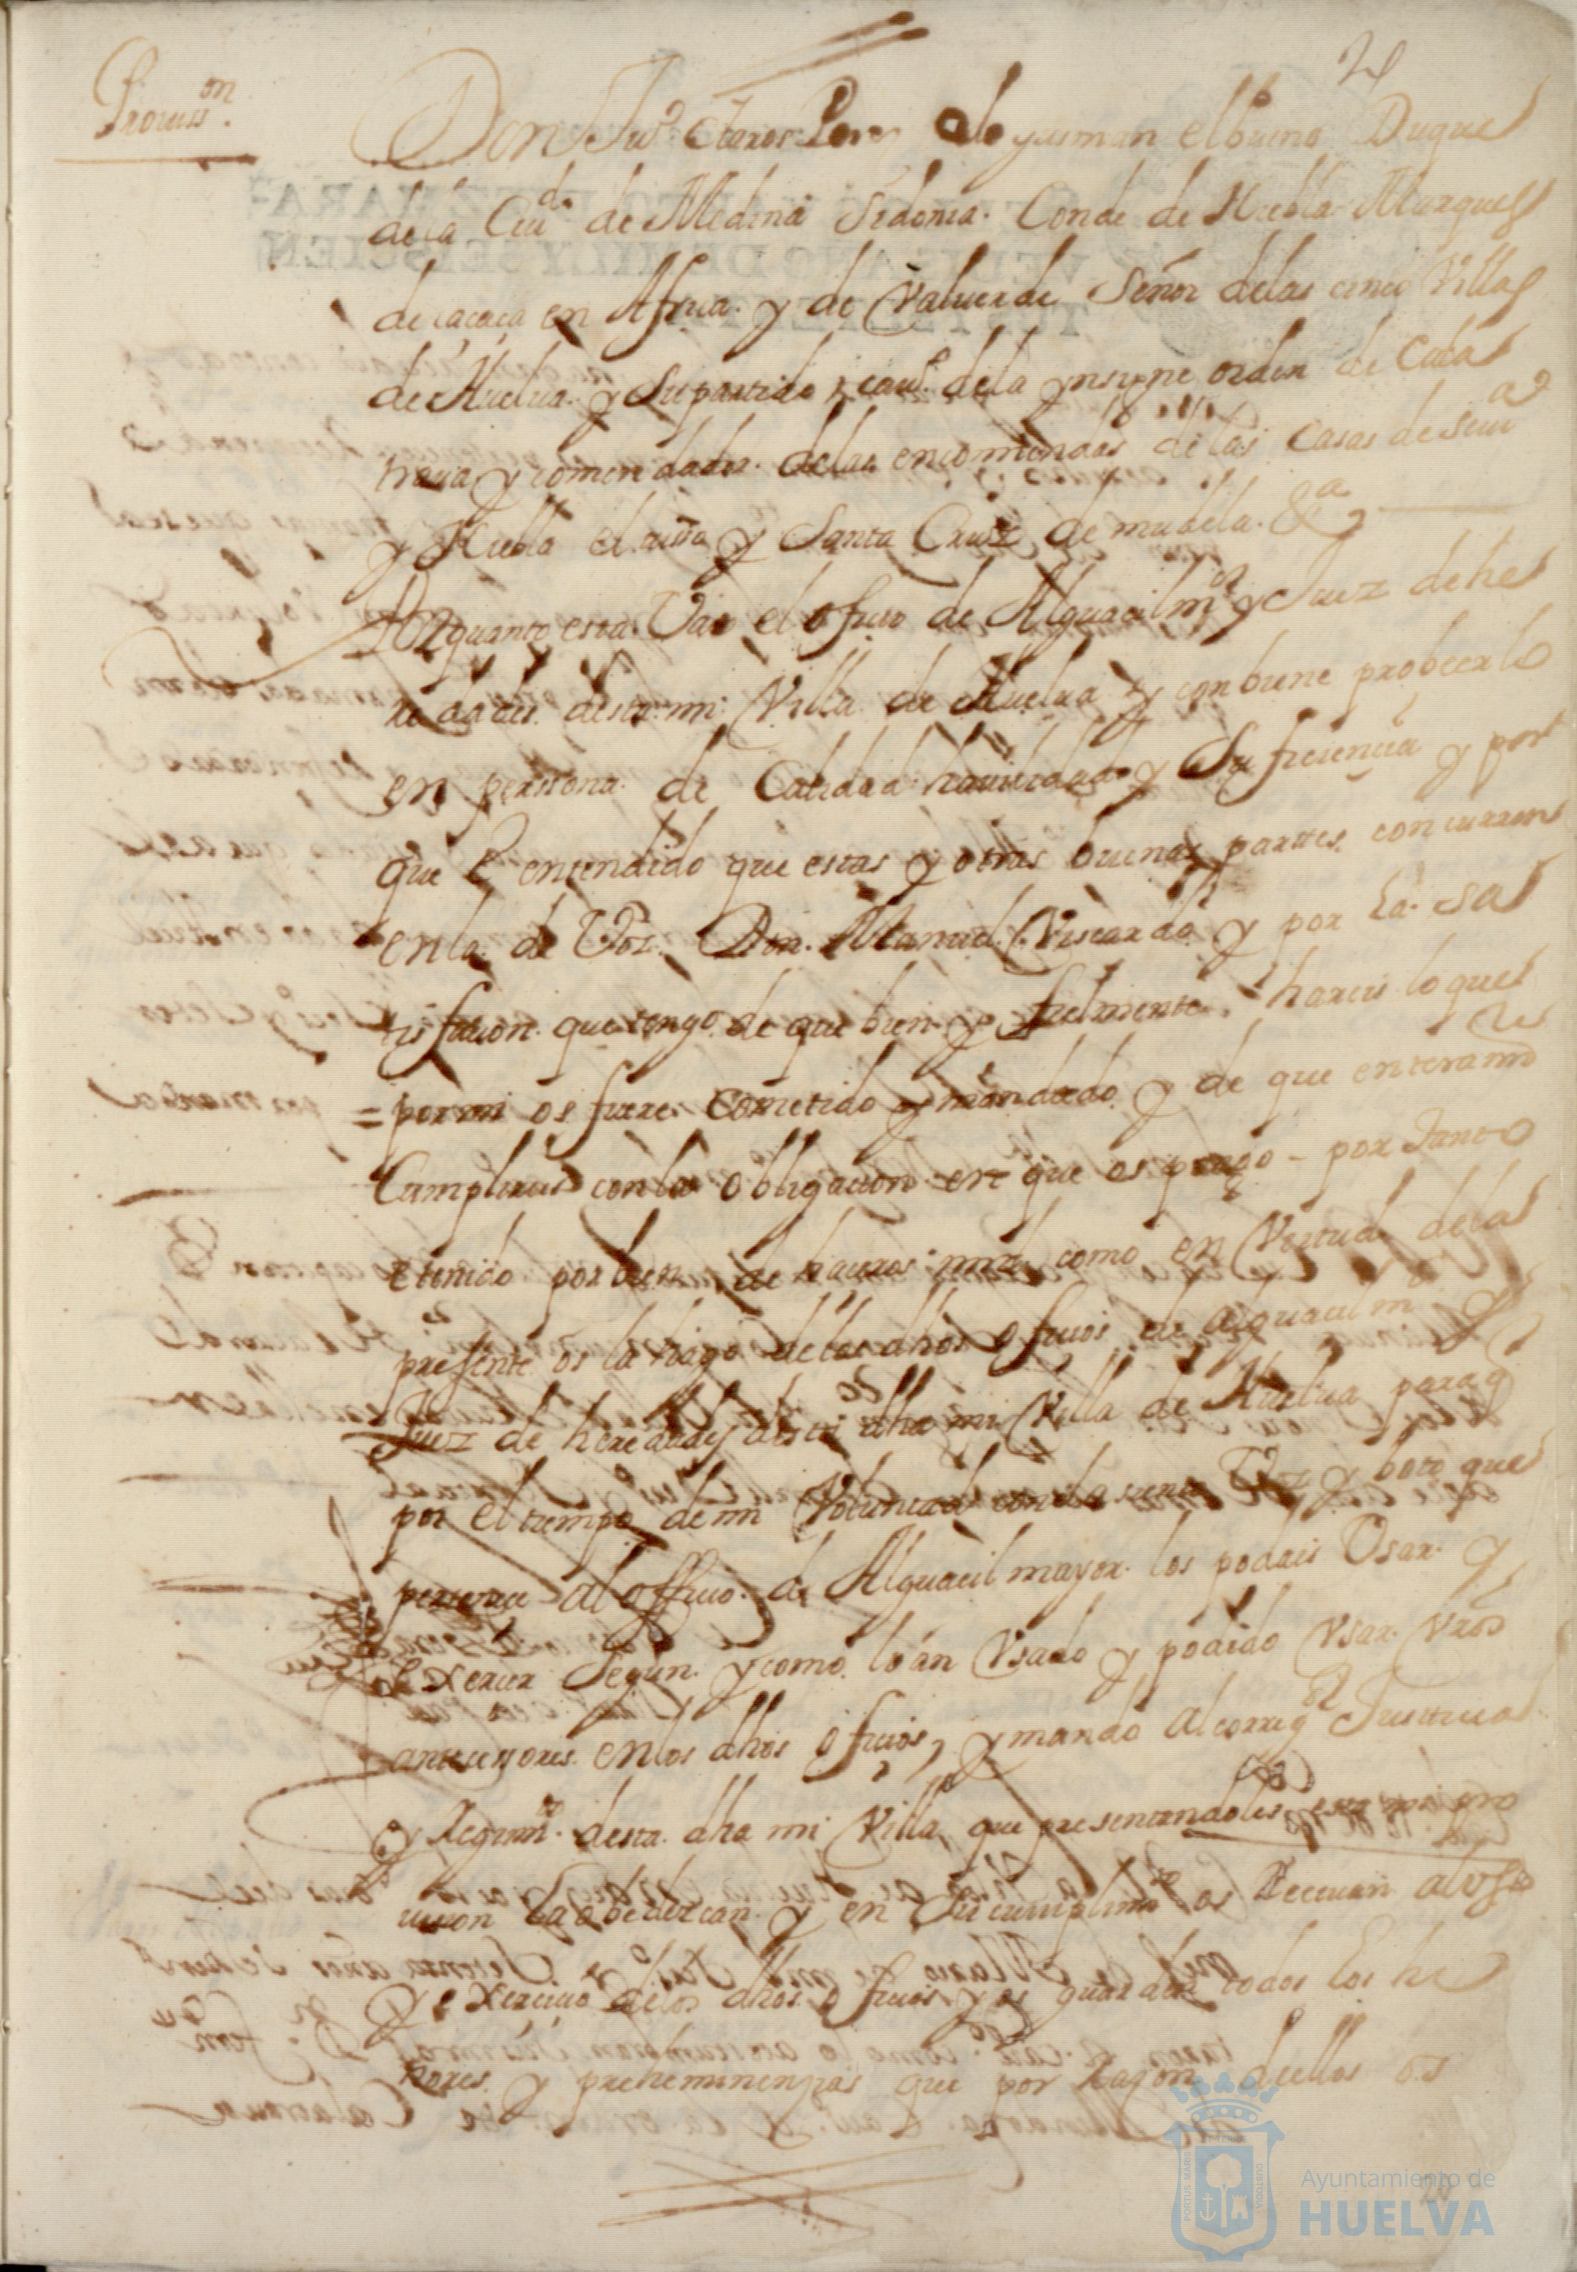 2
Prouiss.on
Don Juº Claros Perez de guzman el bueno Duque
de la Ciud.d de Medina Sidonia. Conde de Niebla Marques
de caçaça en Africa. y de Valuerde Señor delas cinco Villas
de Huelua. y Su partido, cauº dela ynsigne orden de Cala
traua y comendador. delas encomiendas de las Casas de seuª
y Niebla el uisso y Santa Cruz de mudela. &ª
Por quanto esta Vaco el ofiçio de Alguacil mor y Juez de he
redades desta mi Villa de Huelua y conbiene probeerlo
en perssona. de Calidad hauilidad y Sufiçiençia y por
que E entendido que estas y otras buenas parttes concurren
en la de Vos. Don. Manuel Viscardo y por la sa
tisfaçion. que tengo de que bien y fielmente. hareis lo que
= por mi os fuere. Cometido y mandado y de que enteramte
Cumplireis con la obligacion en que os pongo – por tanto
E tenido por bien de haceros mrd como en Vertud dela
presente os la hago de los dhos ofiçios de alguacil mor y
Juez de heredades desta dha mi Villa de Huelua para q
por el tiempo de mi Voluntad con la Voz y boto que
perteneçe al offiçio. de Alguacil mayor. los podais Usar. y
Exerçer Segun. y como lo an Vsado y podido Vsar. Vros
anteçessores en los dhos ofiçios, y mando al correg.or Justtiçia
y Regimto. desta dha mi Villa, que presentandoles esta mi pro
uision la obedezcan. y en Su cumplimto os Reciuan al vso
y exerçiçio delos dhos ofiçios y os guarden todos los ho
nores y preheminençias que por Raçon dellos os
Ayuntamiento de
HUELVA
PORTUS MARIS
CUSTODIA